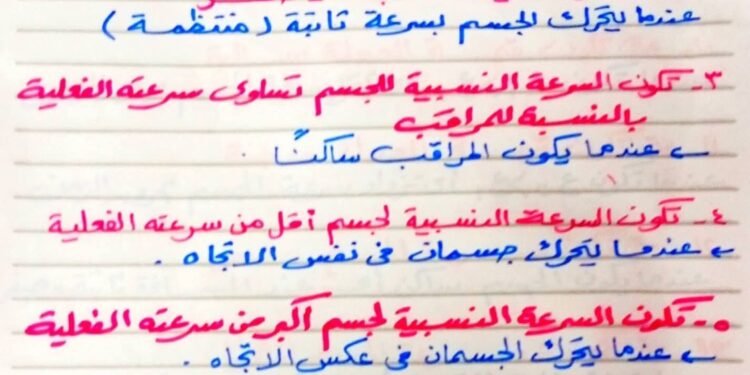 عندما يتحرك الجسم بسرعة ثابتة (منتظمة)
٣- تكون السرعة النسبية للجسم تساوى سرعته الفعلية
بالنسبة للمراقب
← عندما يكون المراقب ساكنًا .
٤- تكون السرعة النسبية لجسم أقل من سرعته الفعلية
← عندما يتحرك جسمان فى نفس الاتجاه .
٥- تكون السرعة النسبية لجسم أكبر من سرعته الفعلية
← عندما يتحرك الجسمان فى عكس الاتجاه .